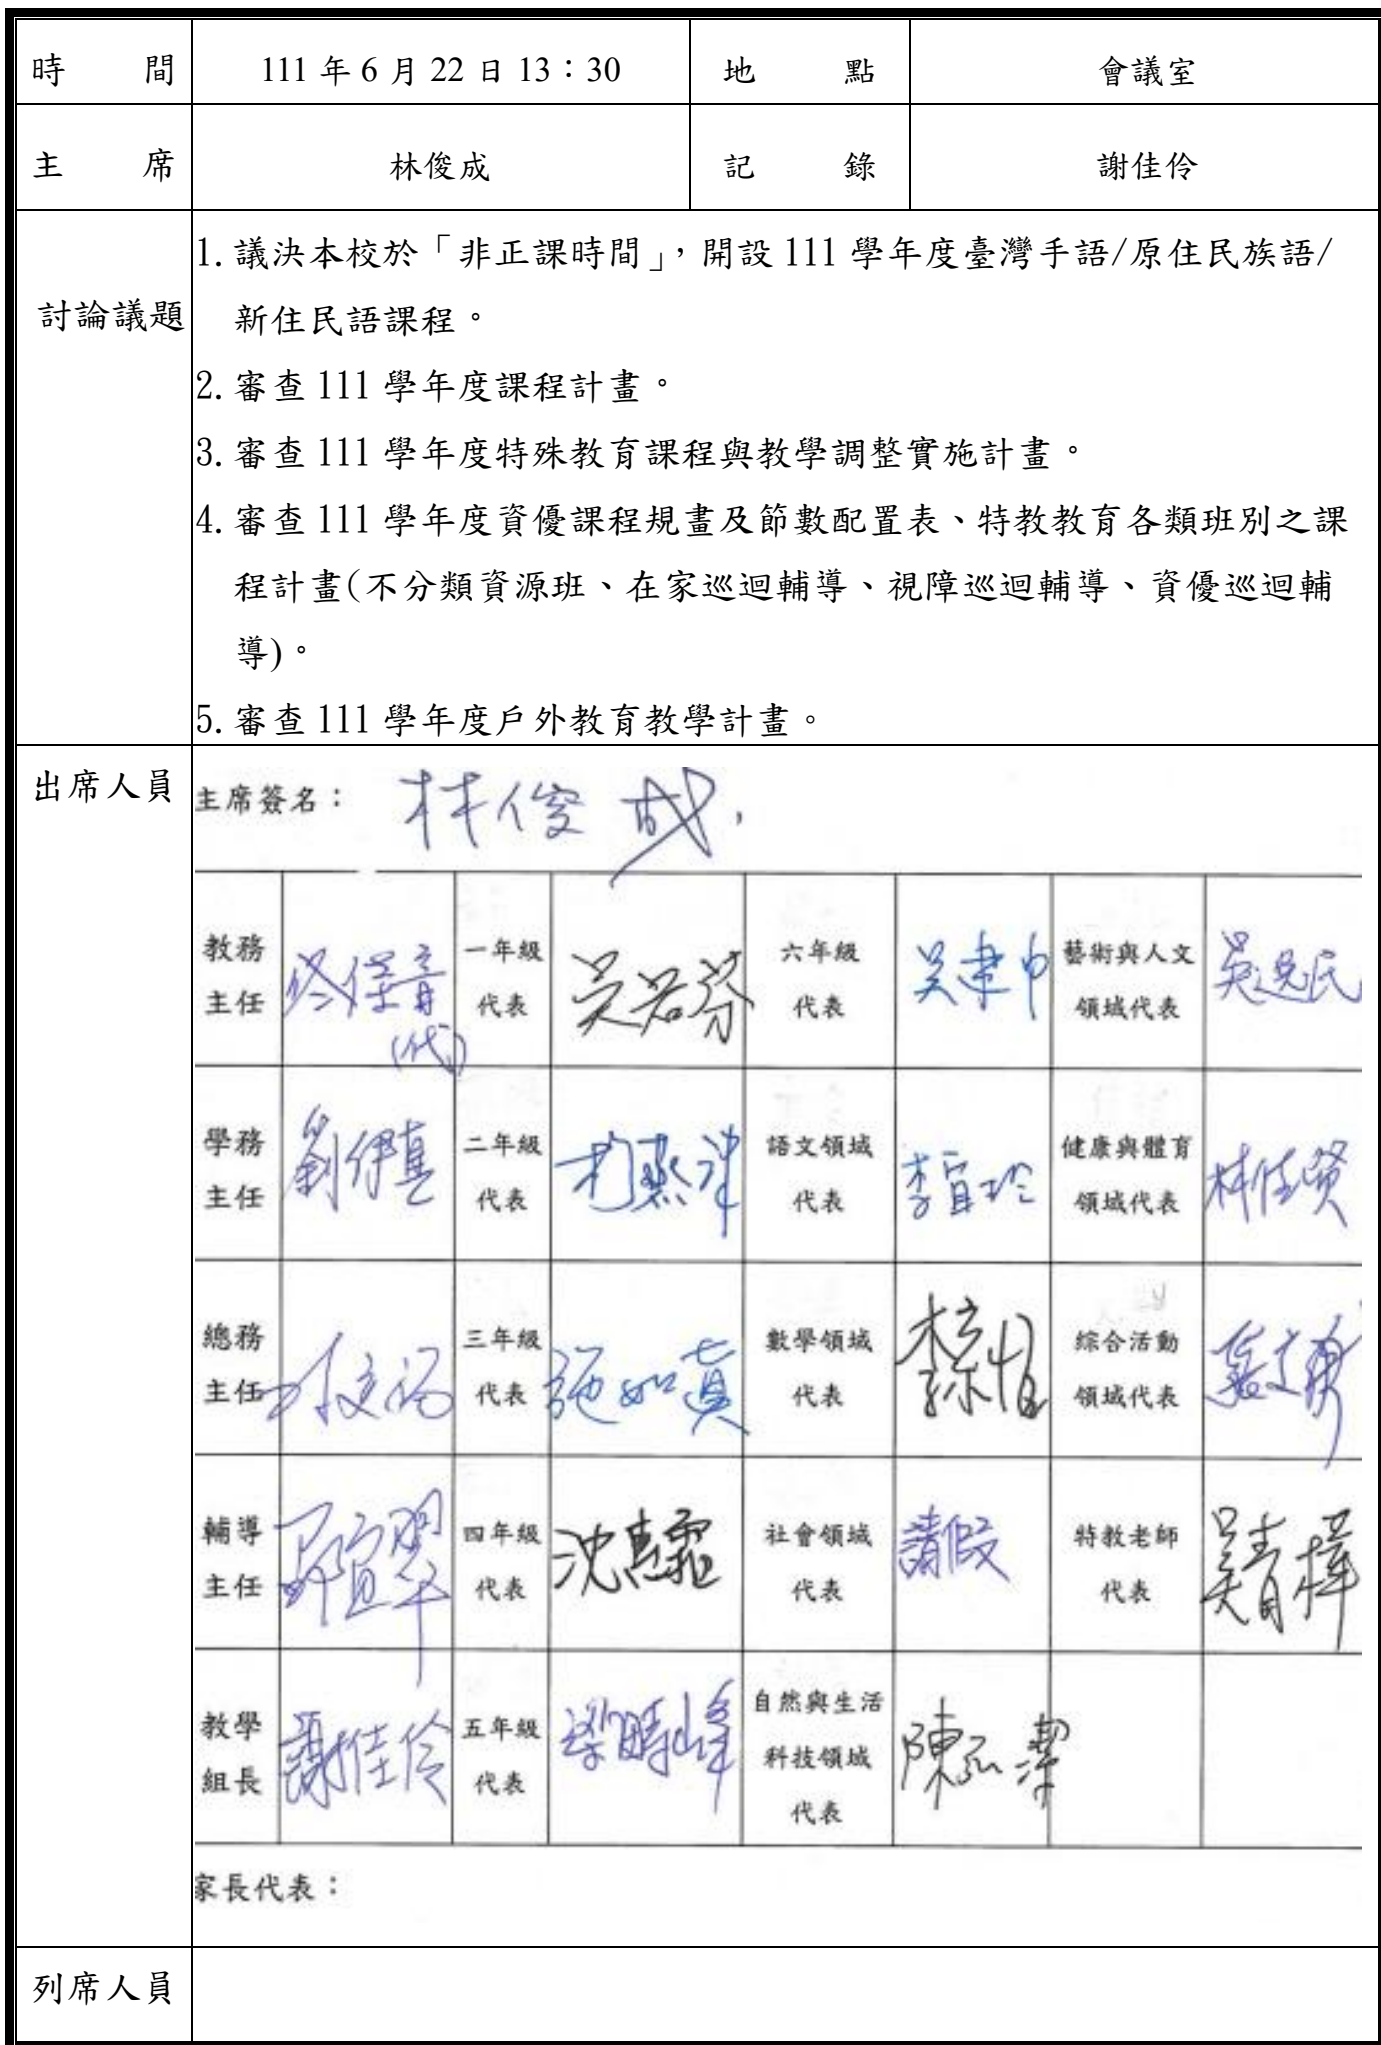 時 間 111 年 6 月 22 日 13：30 地 點 會議室
主 席 林俊成 記 錄 謝佳伶
討論議題
1. 議決本校於「非正課時間」，開設 111 學年度臺灣手語/原住民族語/
新住民語課程。
2. 審查 111 學年度課程計畫。
3. 審查 111 學年度特殊教育課程與教學調整實施計畫。
4. 審查 111 學年度資優課程規畫及節數配置表、特教教育各類班別之課
程計畫(不分類資源班、在家巡迴輔導、視障巡迴輔導、資優巡迴輔
導)。
5. 審查 111 學年度戶外教育教學計畫。
出席人員
主席簽名： 林俊成
教務主任 (代) 一年級代表 吳若芬 六年級代表 藝術與人文領域代表
學務主任 劉伊真 二年級代表 語文領域代表 李宜玲 健康與體育領域代表 林佳賢
總務主任 三年級代表 施如真 數學領域代表 綜合活動領域代表
輔導主任 四年級代表 沈惠霜 社會領域代表 請假 特教老師代表 吳青樺
教學組長 謝佳伶 五年級代表 梁晴峰 自然與生活科技領域代表 陳弘潔
家長代表：
列席人員